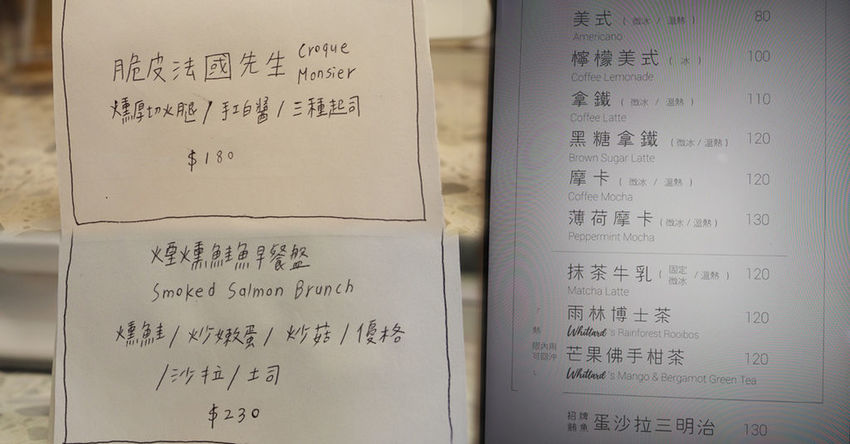 脆皮法國先生 Croque
Monsier
燻厚切火腿 / 手工白醬 / 三種起司
$180
煙燻鮭魚早餐盤
Smoked Salmon Brunch
燻鮭 / 炒嫩蛋 / 炒菇 / 優格
/ 沙拉 / 土司
$230
美式 ( 微冰 / 溫熱 ) 80
Americano
檸檬美式 ( 冰 ) 100
Coffee Lemonade
拿鐵 ( 微冰 / 溫熱 ) 110
Coffee Latte
黑糖拿鐵 ( 微冰 / 溫熱 ) 120
Brown Sugar Latte
摩卡 ( 微冰 / 溫熱 ) 120
Coffee Mocha
薄荷摩卡 ( 微冰 / 溫熱 ) 130
Peppermint Mocha
抹茶牛乳 ( 固定微冰 / 溫熱 ) 120
Matcha Latte
雨林博士茶 120
Whittard's Rainforest Rooibos
熱
限內用
可回沖
芒果佛手柑茶 120
Whittard's Mango & Bergamot Green Tea
招牌鮪魚 蛋沙拉三明治 130